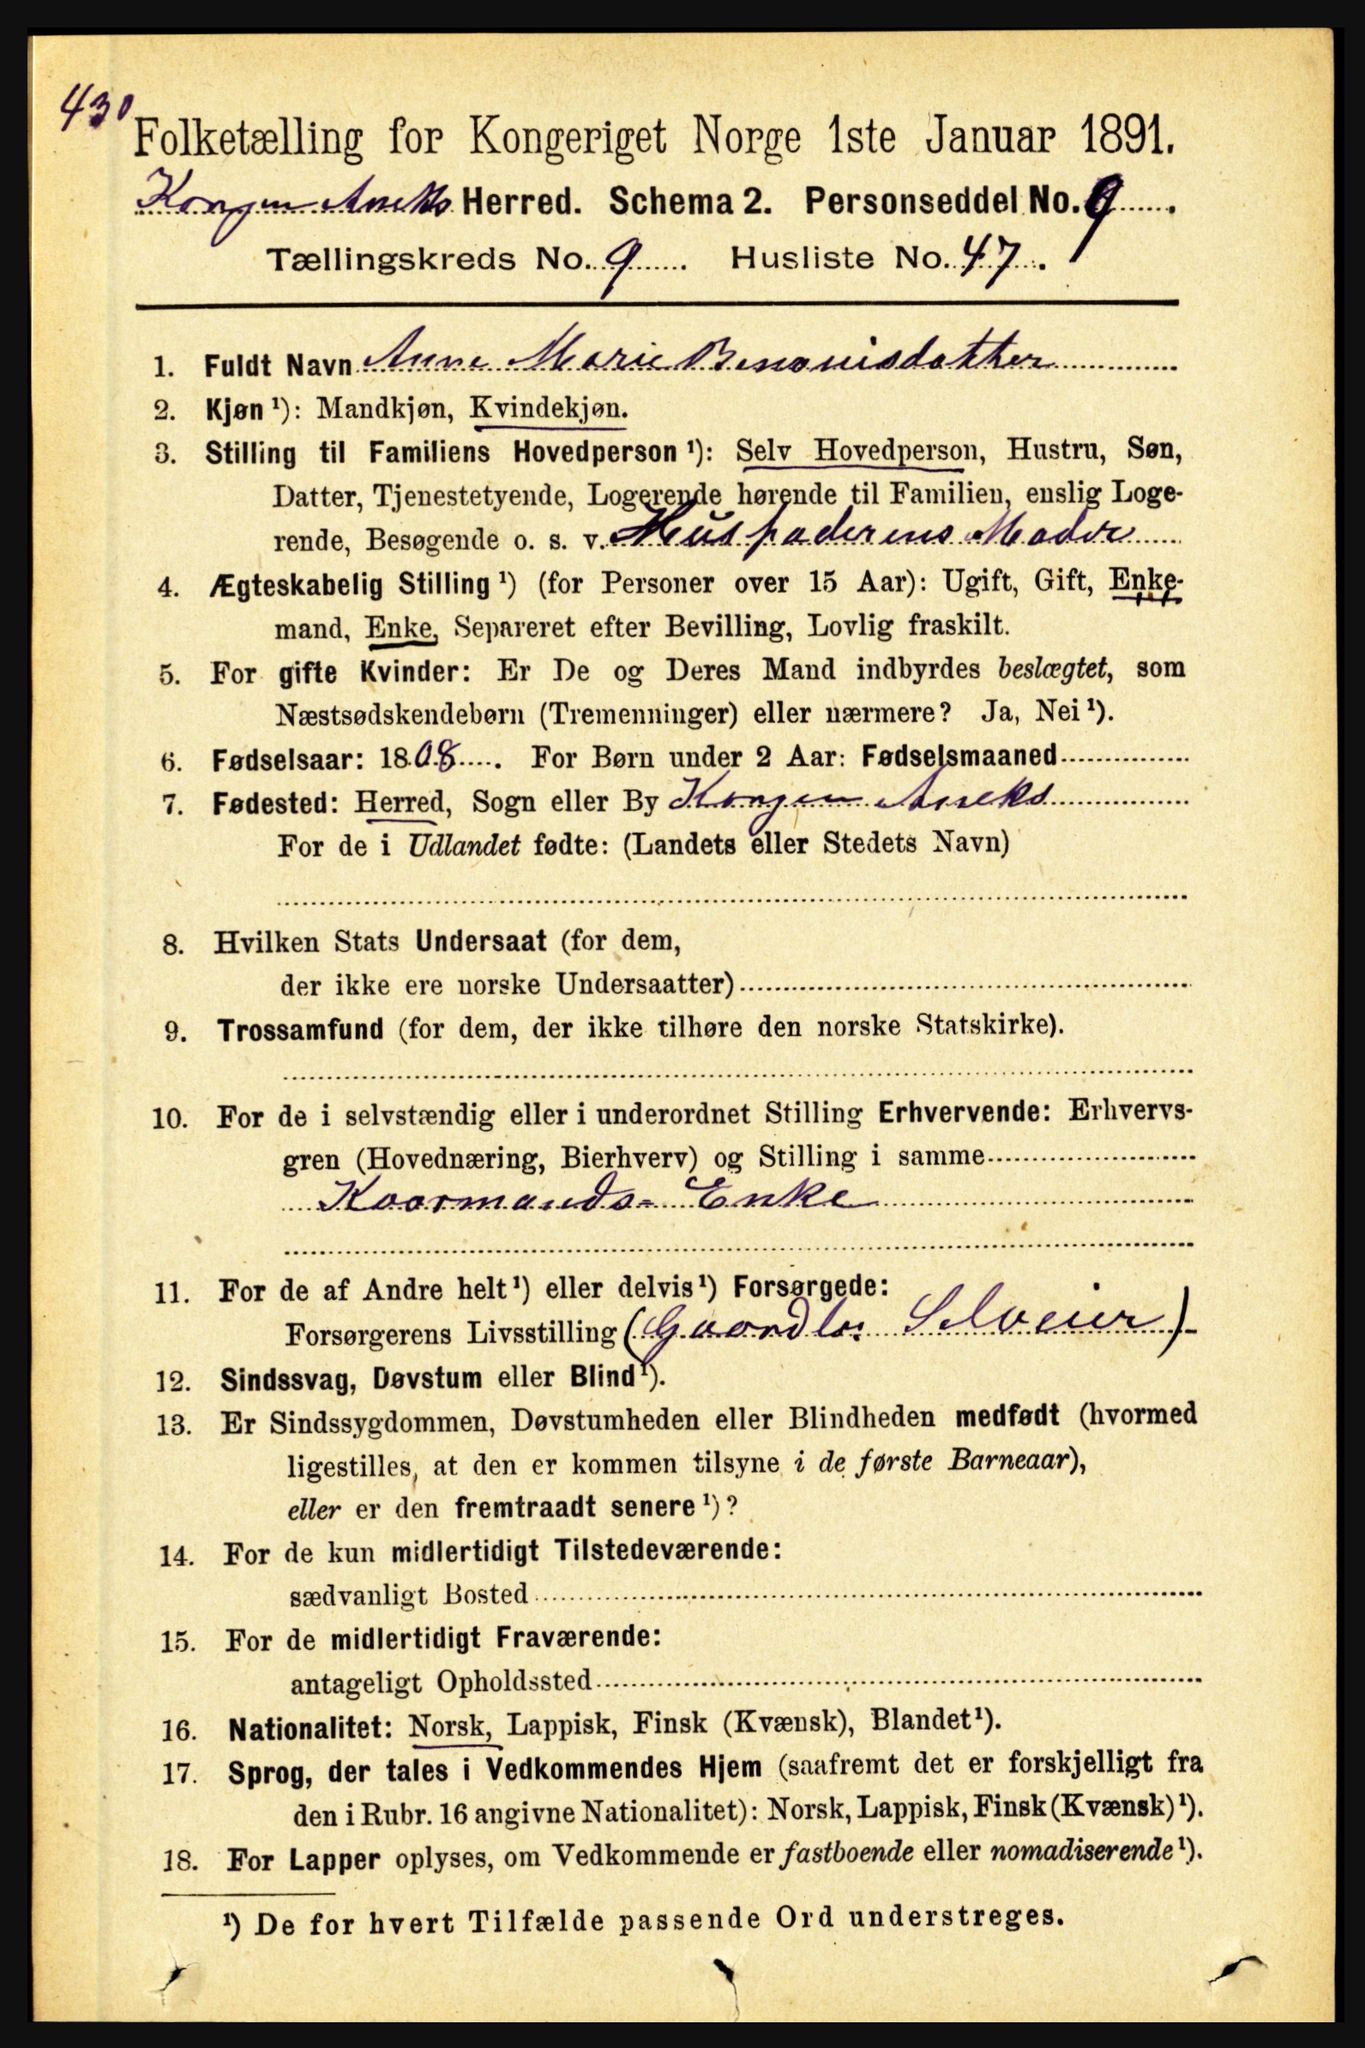 430
Folketælling for Kongeriget Norge 1ste Januar 1891.
Herred. Schema 2. Personseddel No. 9.
Tællingskreds No. 9. Husliste No. 47.
1. Fuldt Navn Anne Marie Benonisdatter
2. Kjøn ¹): Mandkjøn, Kvindekjøn.
3. Stilling til Familiens Hovedperson ¹): Selv Hovedperson, Hustru, Søn,
Datter, Tjenestetyende, Logerende hørende til Familien, enslig Loge-
rende, Besøgende o. s. v. Husfaderens Moder
4. Ægteskabelig Stilling ¹) (for Personer over 15 Aar): Ugift, Gift, Enke-
mand, Enke, Separeret efter Bevilling, Lovlig fraskilt.
5. For gifte Kvinder: Er De og Deres Mand indbyrdes beslægtet, som
Næstsødskendebørn (Tremenninger) eller nærmere? Ja, Nei ¹).
6. Fødselsaar: 1808. For Børn under 2 Aar: Fødselsmaaned
7. Fødested: Herred, Sogn eller By
For de i Udlandet fødte: (Landets eller Stedets Navn)
8. Hvilken Stats Undersaat (for dem,
der ikke ere norske Undersaatter)
9. Trossamfund (for dem, der ikke tilhøre den norske Statskirke).
10. For de i selvstændig eller i underordnet Stilling Erhvervende: Erhvervs-
gren (Hovednæring, Bierhverv) og Stilling i samme
Kaarmands-Enke
11. For de af Andre helt ¹) eller delvis ¹) Forsørgede:
Forsørgerens Livsstilling (Gaardbr. Selveier)
12. Sindssvag, Døvstum eller Blind ¹).
13. Er Sindssygdommen, Døvstumheden eller Blindheden medfødt (hvormed
ligestilles, at den er kommen tilsyne i de første Barneaar),
eller er den fremtraadt senere ¹)?
14. For de kun midlertidigt Tilstedeværende:
sædvanligt Bosted
15. For de midlertidigt Fraværende:
antageligt Opholdssted
16. Nationalitet: Norsk, Lappisk, Finsk (Kvænsk), Blandet ¹).
17. Sprog, der tales i Vedkommendes Hjem (saafremt det er forskjelligt fra
den i Rubr. 16 angivne Nationalitet): Norsk, Lappisk, Finsk (Kvænsk) ¹).
18. For Lapper oplyses, om Vedkommende er fastboende eller nomadiserende ¹).
¹) De for hvert Tilfælde passende Ord understreges.